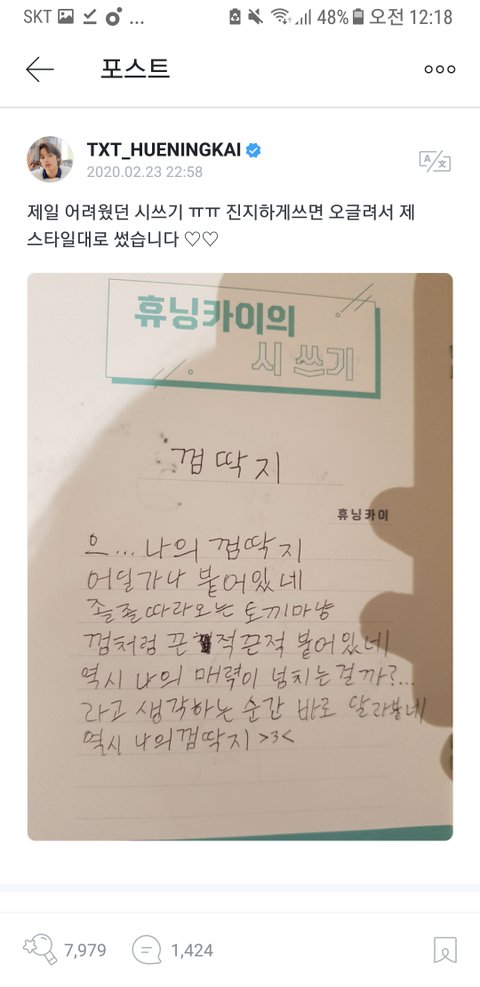 SKT ... 48% 오전 12:18
포스트
TXT_HUENINGKAI
2020.02.23 22:58
제일 어려웠던 시쓰기 ㅠㅠ 진지하게쓰면 오글려서 제
스타일대로 썼습니다 ♡♡
휴닝카이의
시 쓰기
껌딱지
휴닝카이
으... 나의 껌딱지
어딜가나 붙어있네
졸졸 따라오는 토끼마냥
껌처럼 끈적끈적 붙어있네
역시 나의 매력이 넘치는 걸까?...
라고 생각하는 순간 바로 달라붙네
역시 나의껌딱지 >3<
7,979
1,424